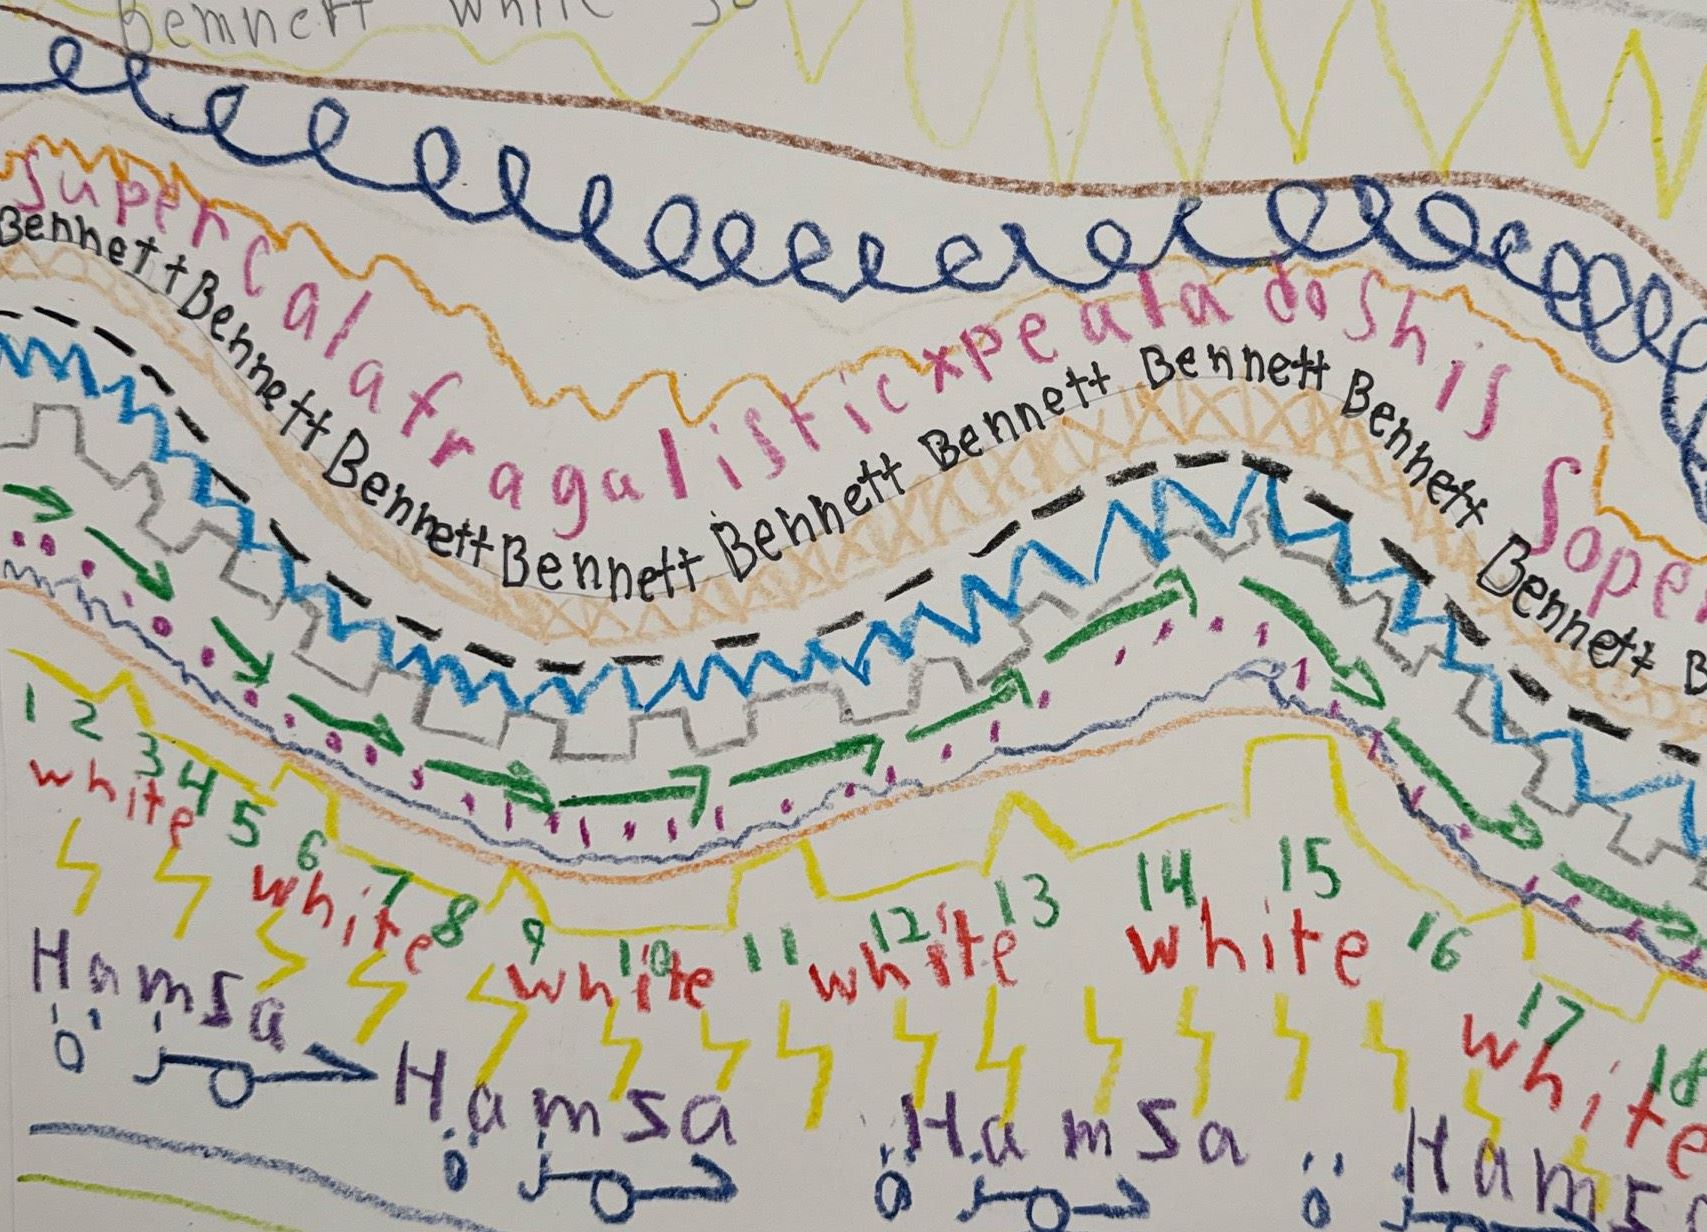 Bennett White
Supercalafragalisticxpealadoshis Sope
Bennett Bennett Bennett Bennett Bennett Bennett Bennett Bennett Bennett B
1 2 3 4 5 6 7 8 9 10 11 12 13 14 15 16 17 18
white white white white white white
Hamsa Hamsa Hamsa Hams